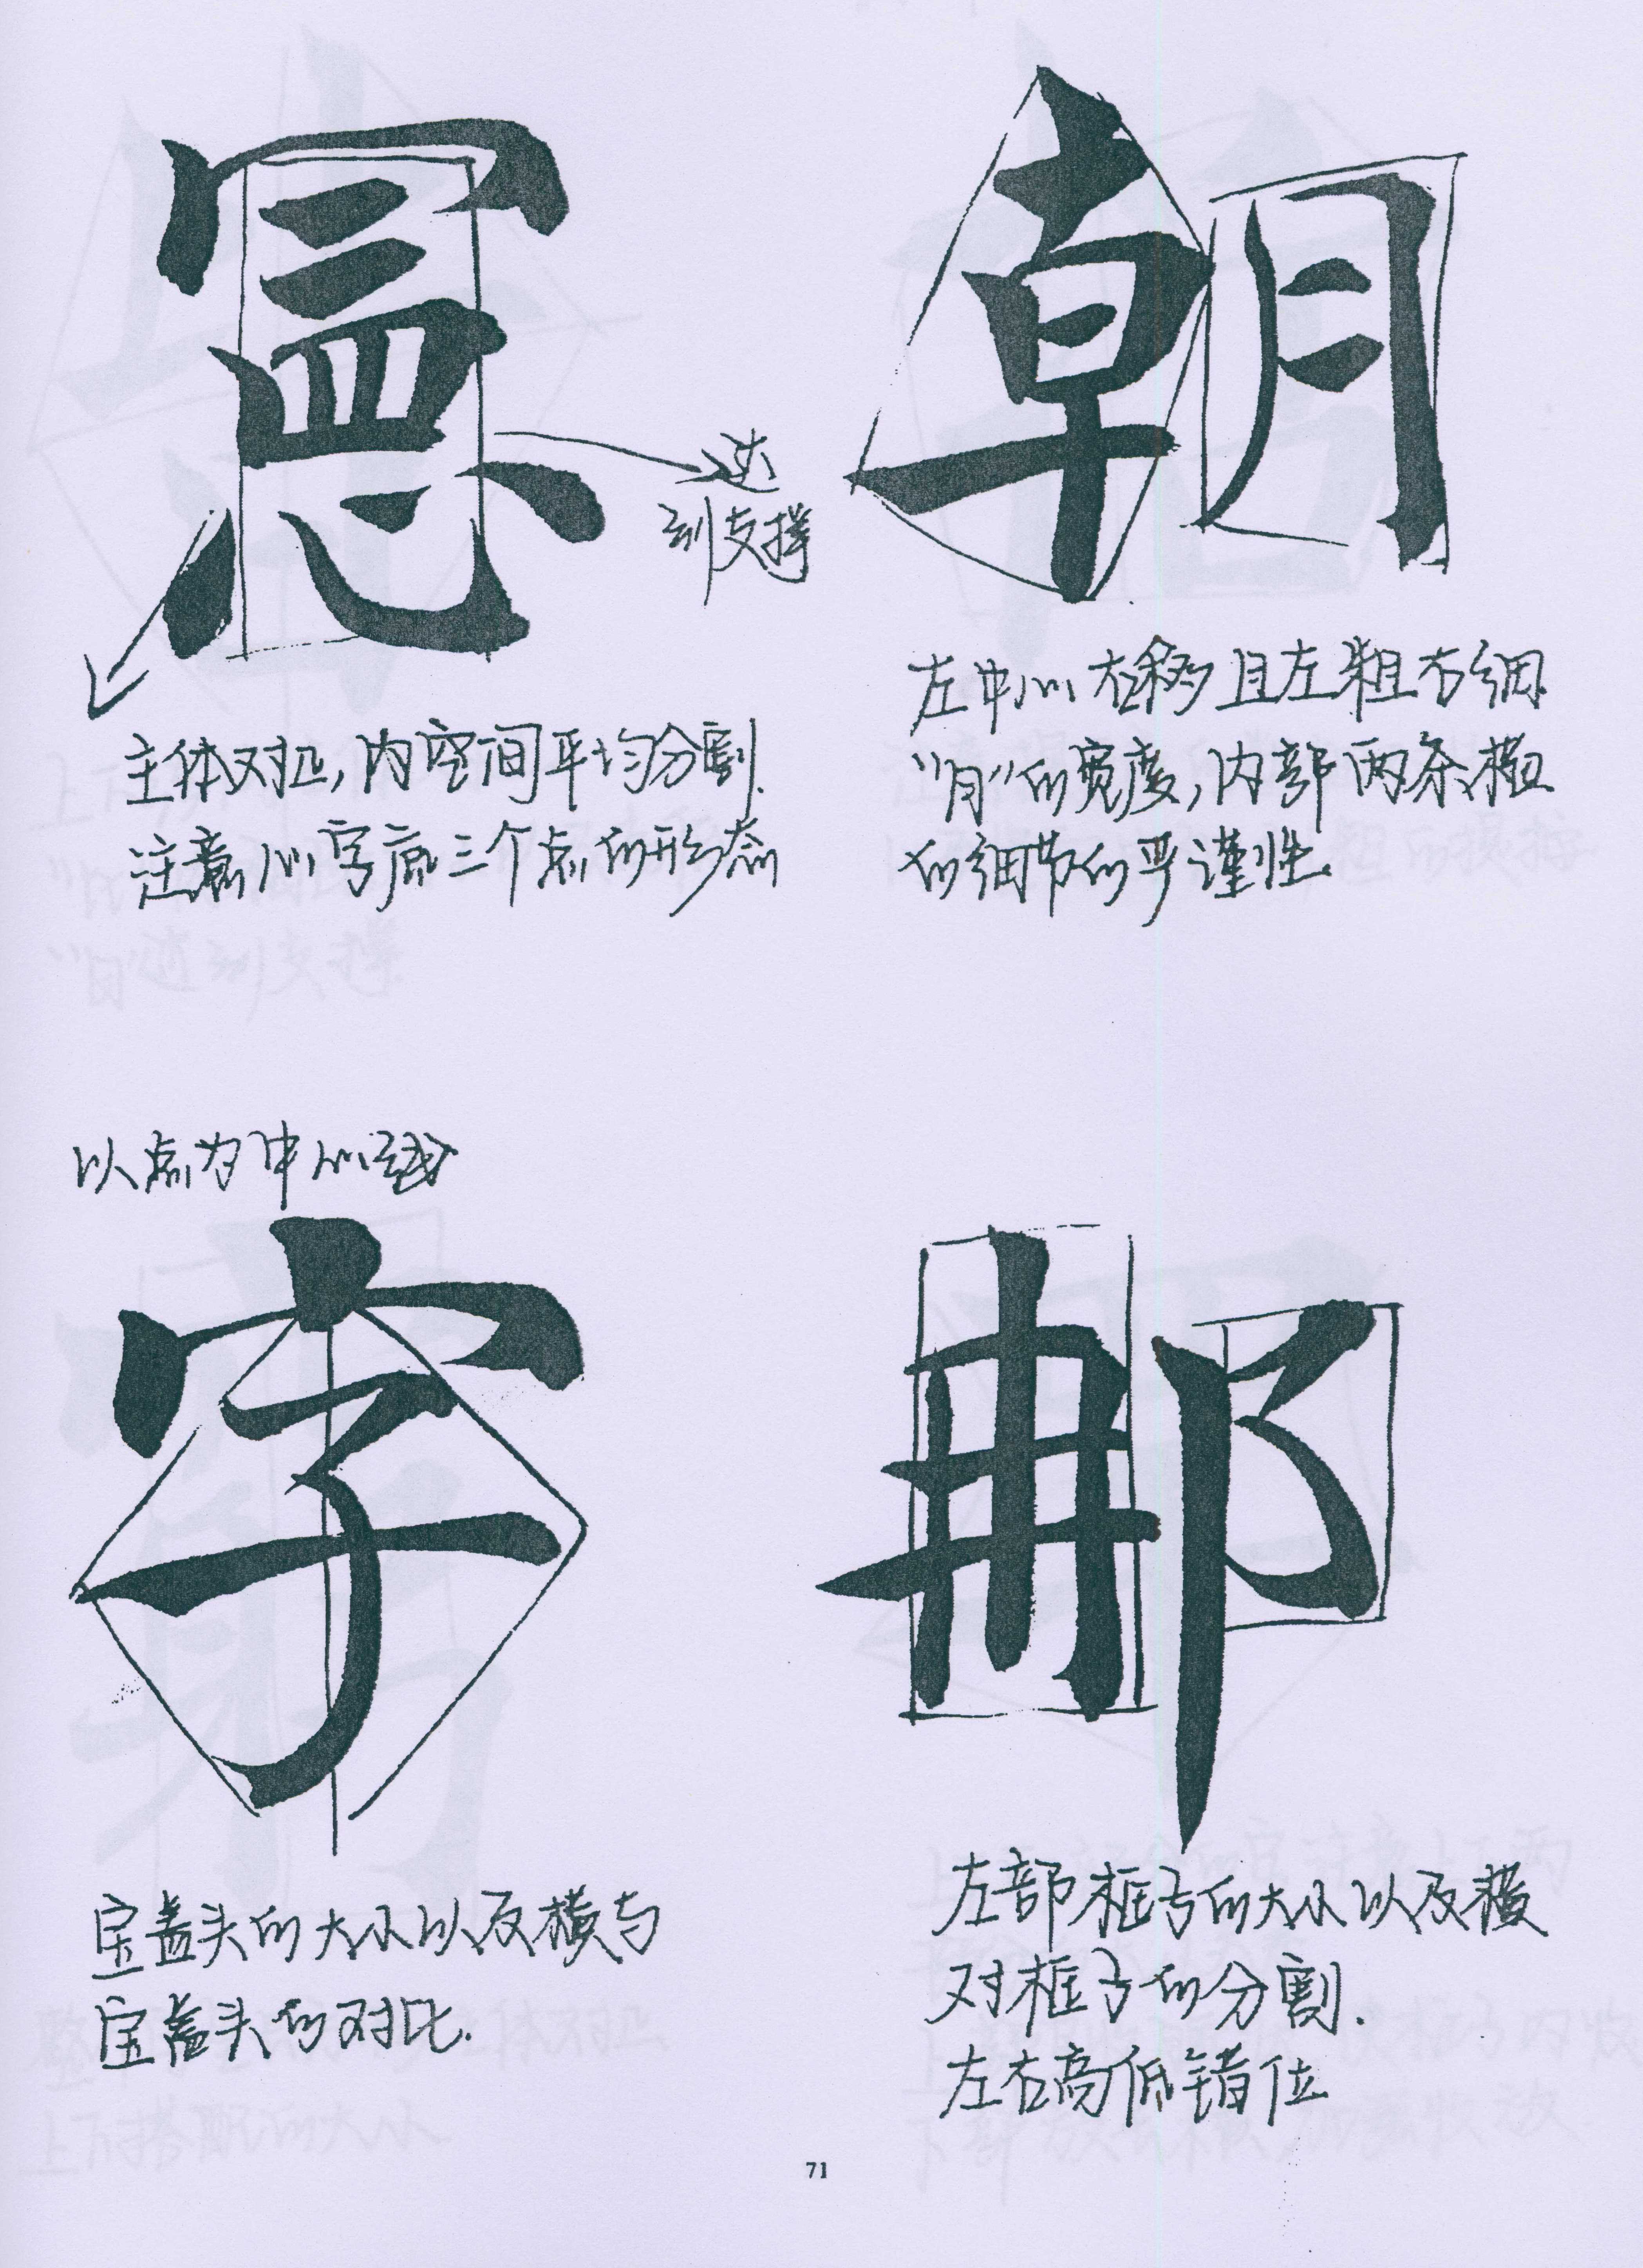 憲
达
到支撑
主体对正,内空间平均分割.
注意心字底三个点的形态
朝
左中心右移且左粗右细.
“月”的宽度,内部两条横
的细节的严谨性.
以点为中心线
字
宝盖头的大小以及横与
宝盖头的对比.
那
左部框子的大小以及横
对框子的分割.
左右高低错位
71